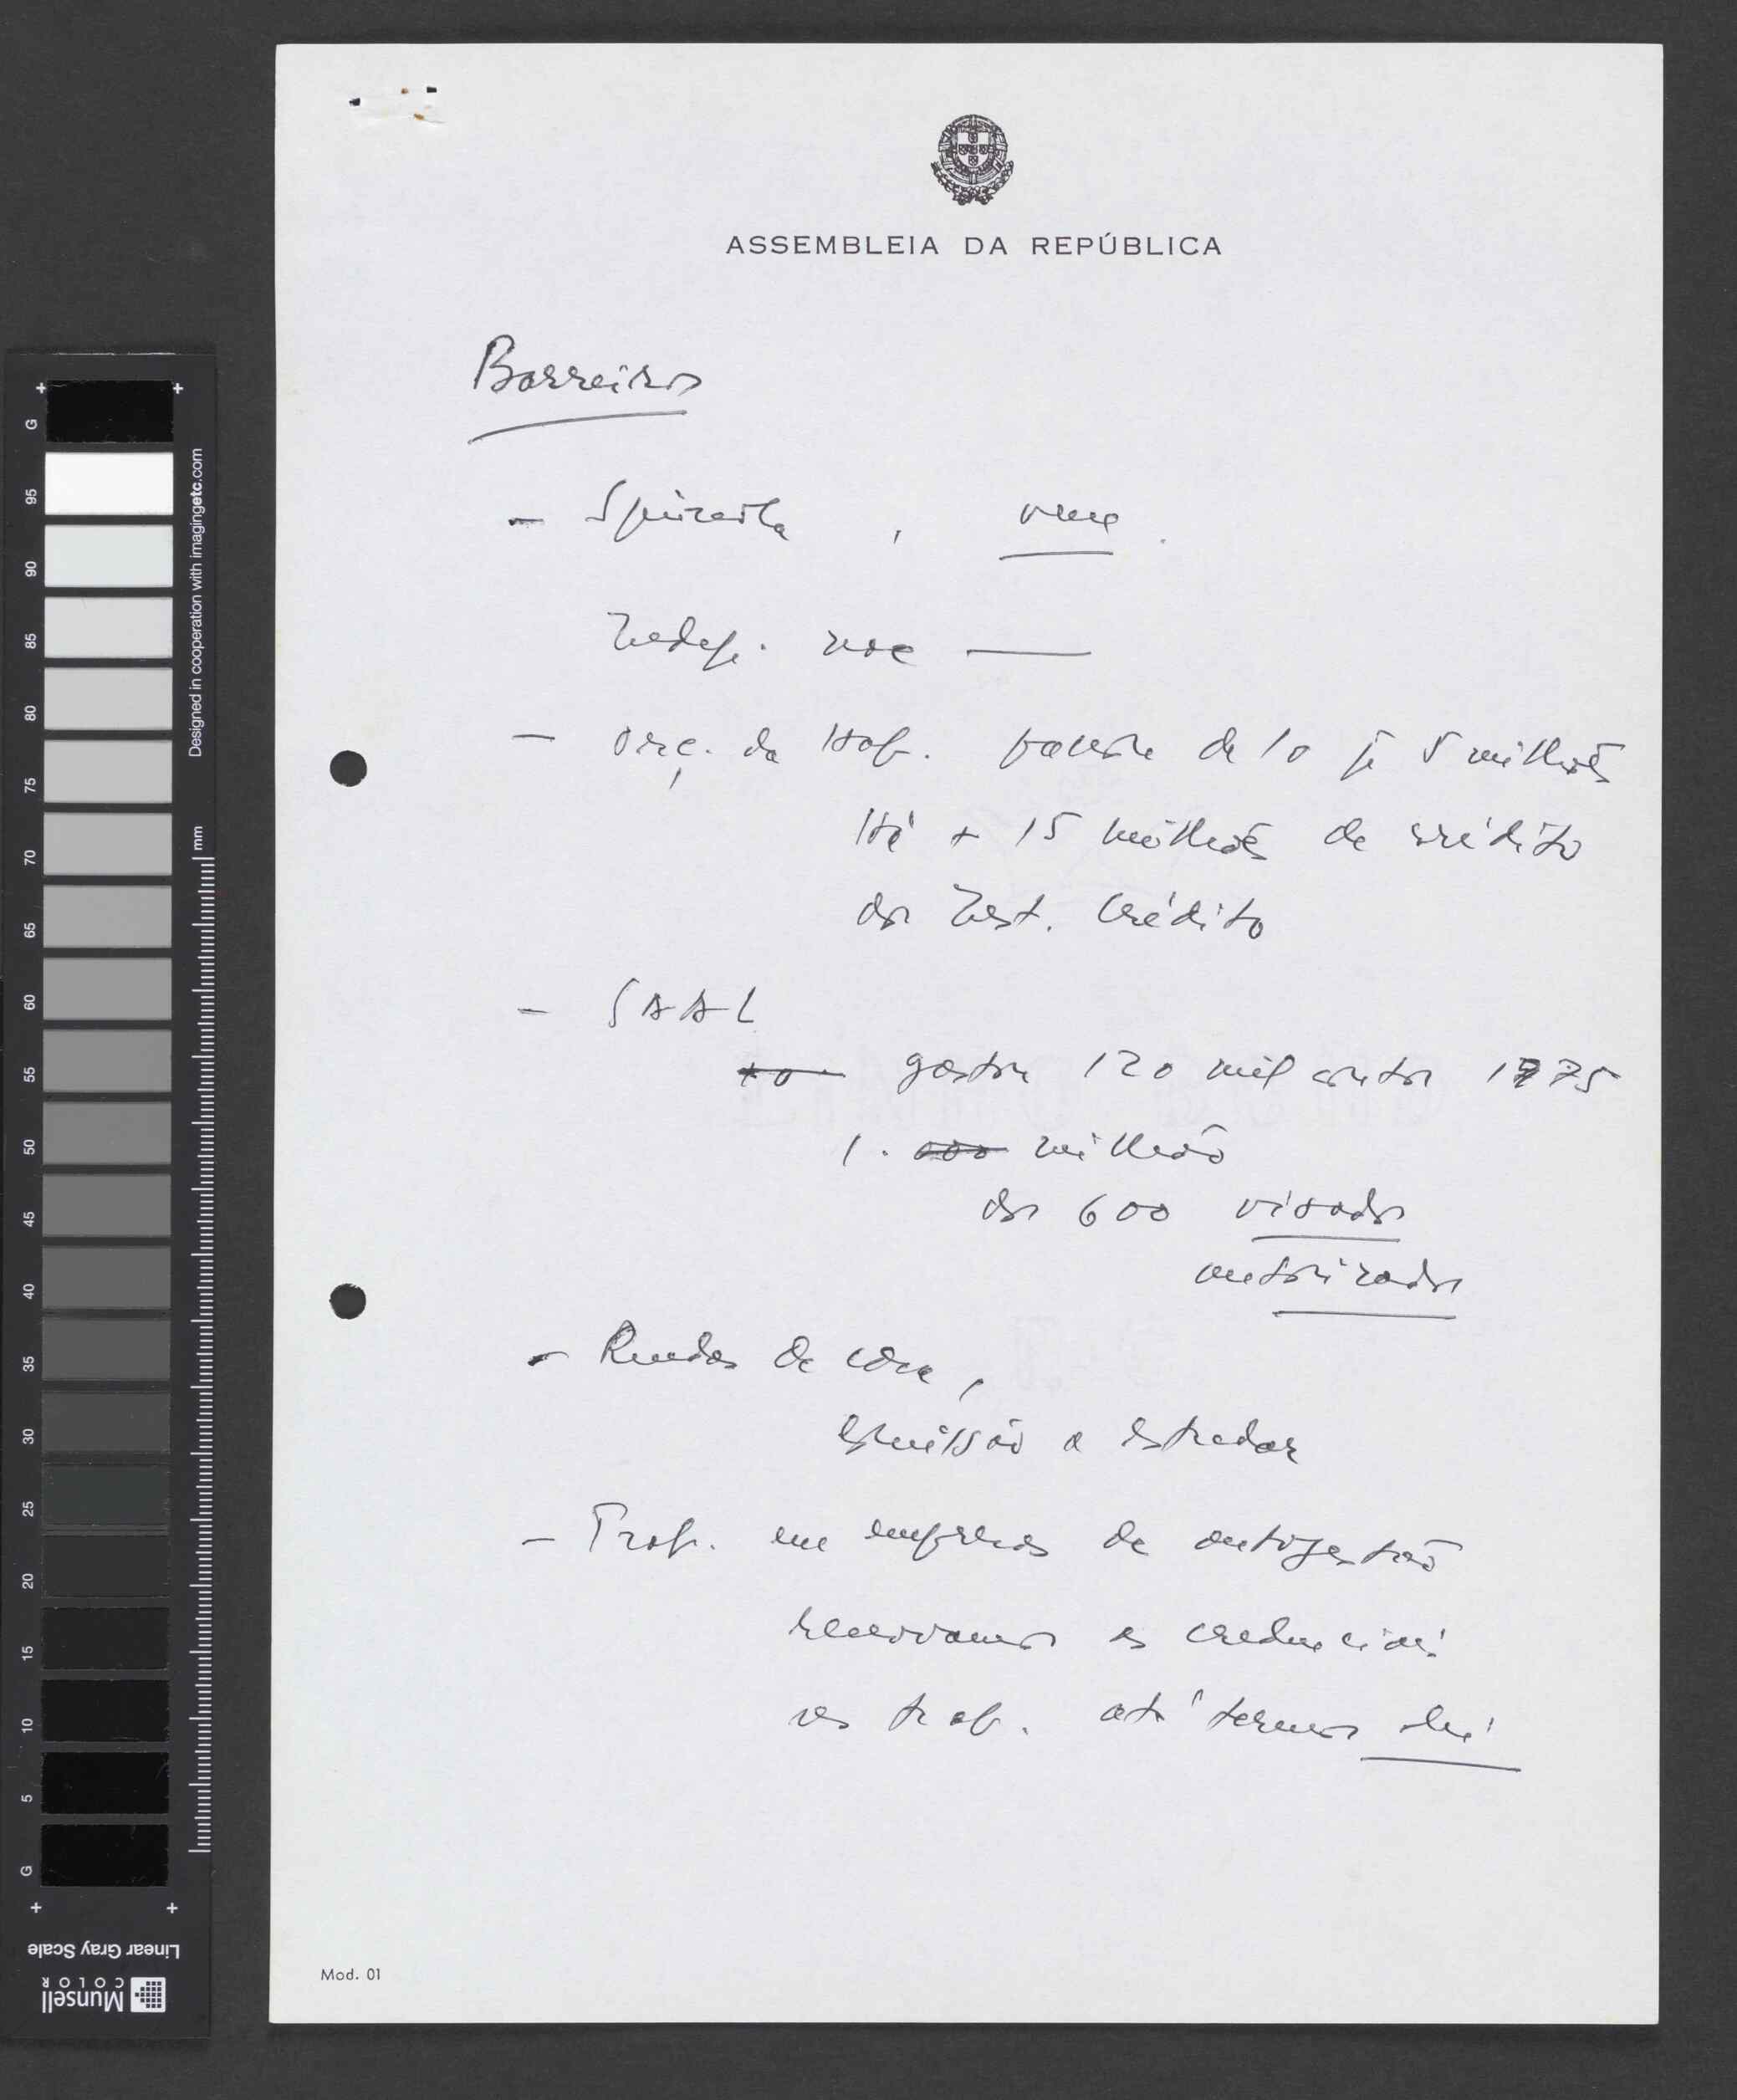 ASSEMBLEIA DA REPÚBLICA
Barreiros
- Spínola,
Indep.
- Orç. da Hab. de 10 p 5 milhões
Há + 15 milhões de crédito
do Inst. Crédito
- SAAL
gastou 120 mil contos 1975
1. 000 milhão
dos 600 visados
autorizados
- Rendas de casa,
comissão a estudar
- Trab. em empresas de autogestão
as credenciais
os trab. até termos lei
Mod. 01
G
95
90
85
80
75
70
65
60
55
50
45
40
35
30
25
20
15
10
5
G
mm
Designed in cooperation with imagingetc.com
Linear Gray Scale
Munsell
COLOR